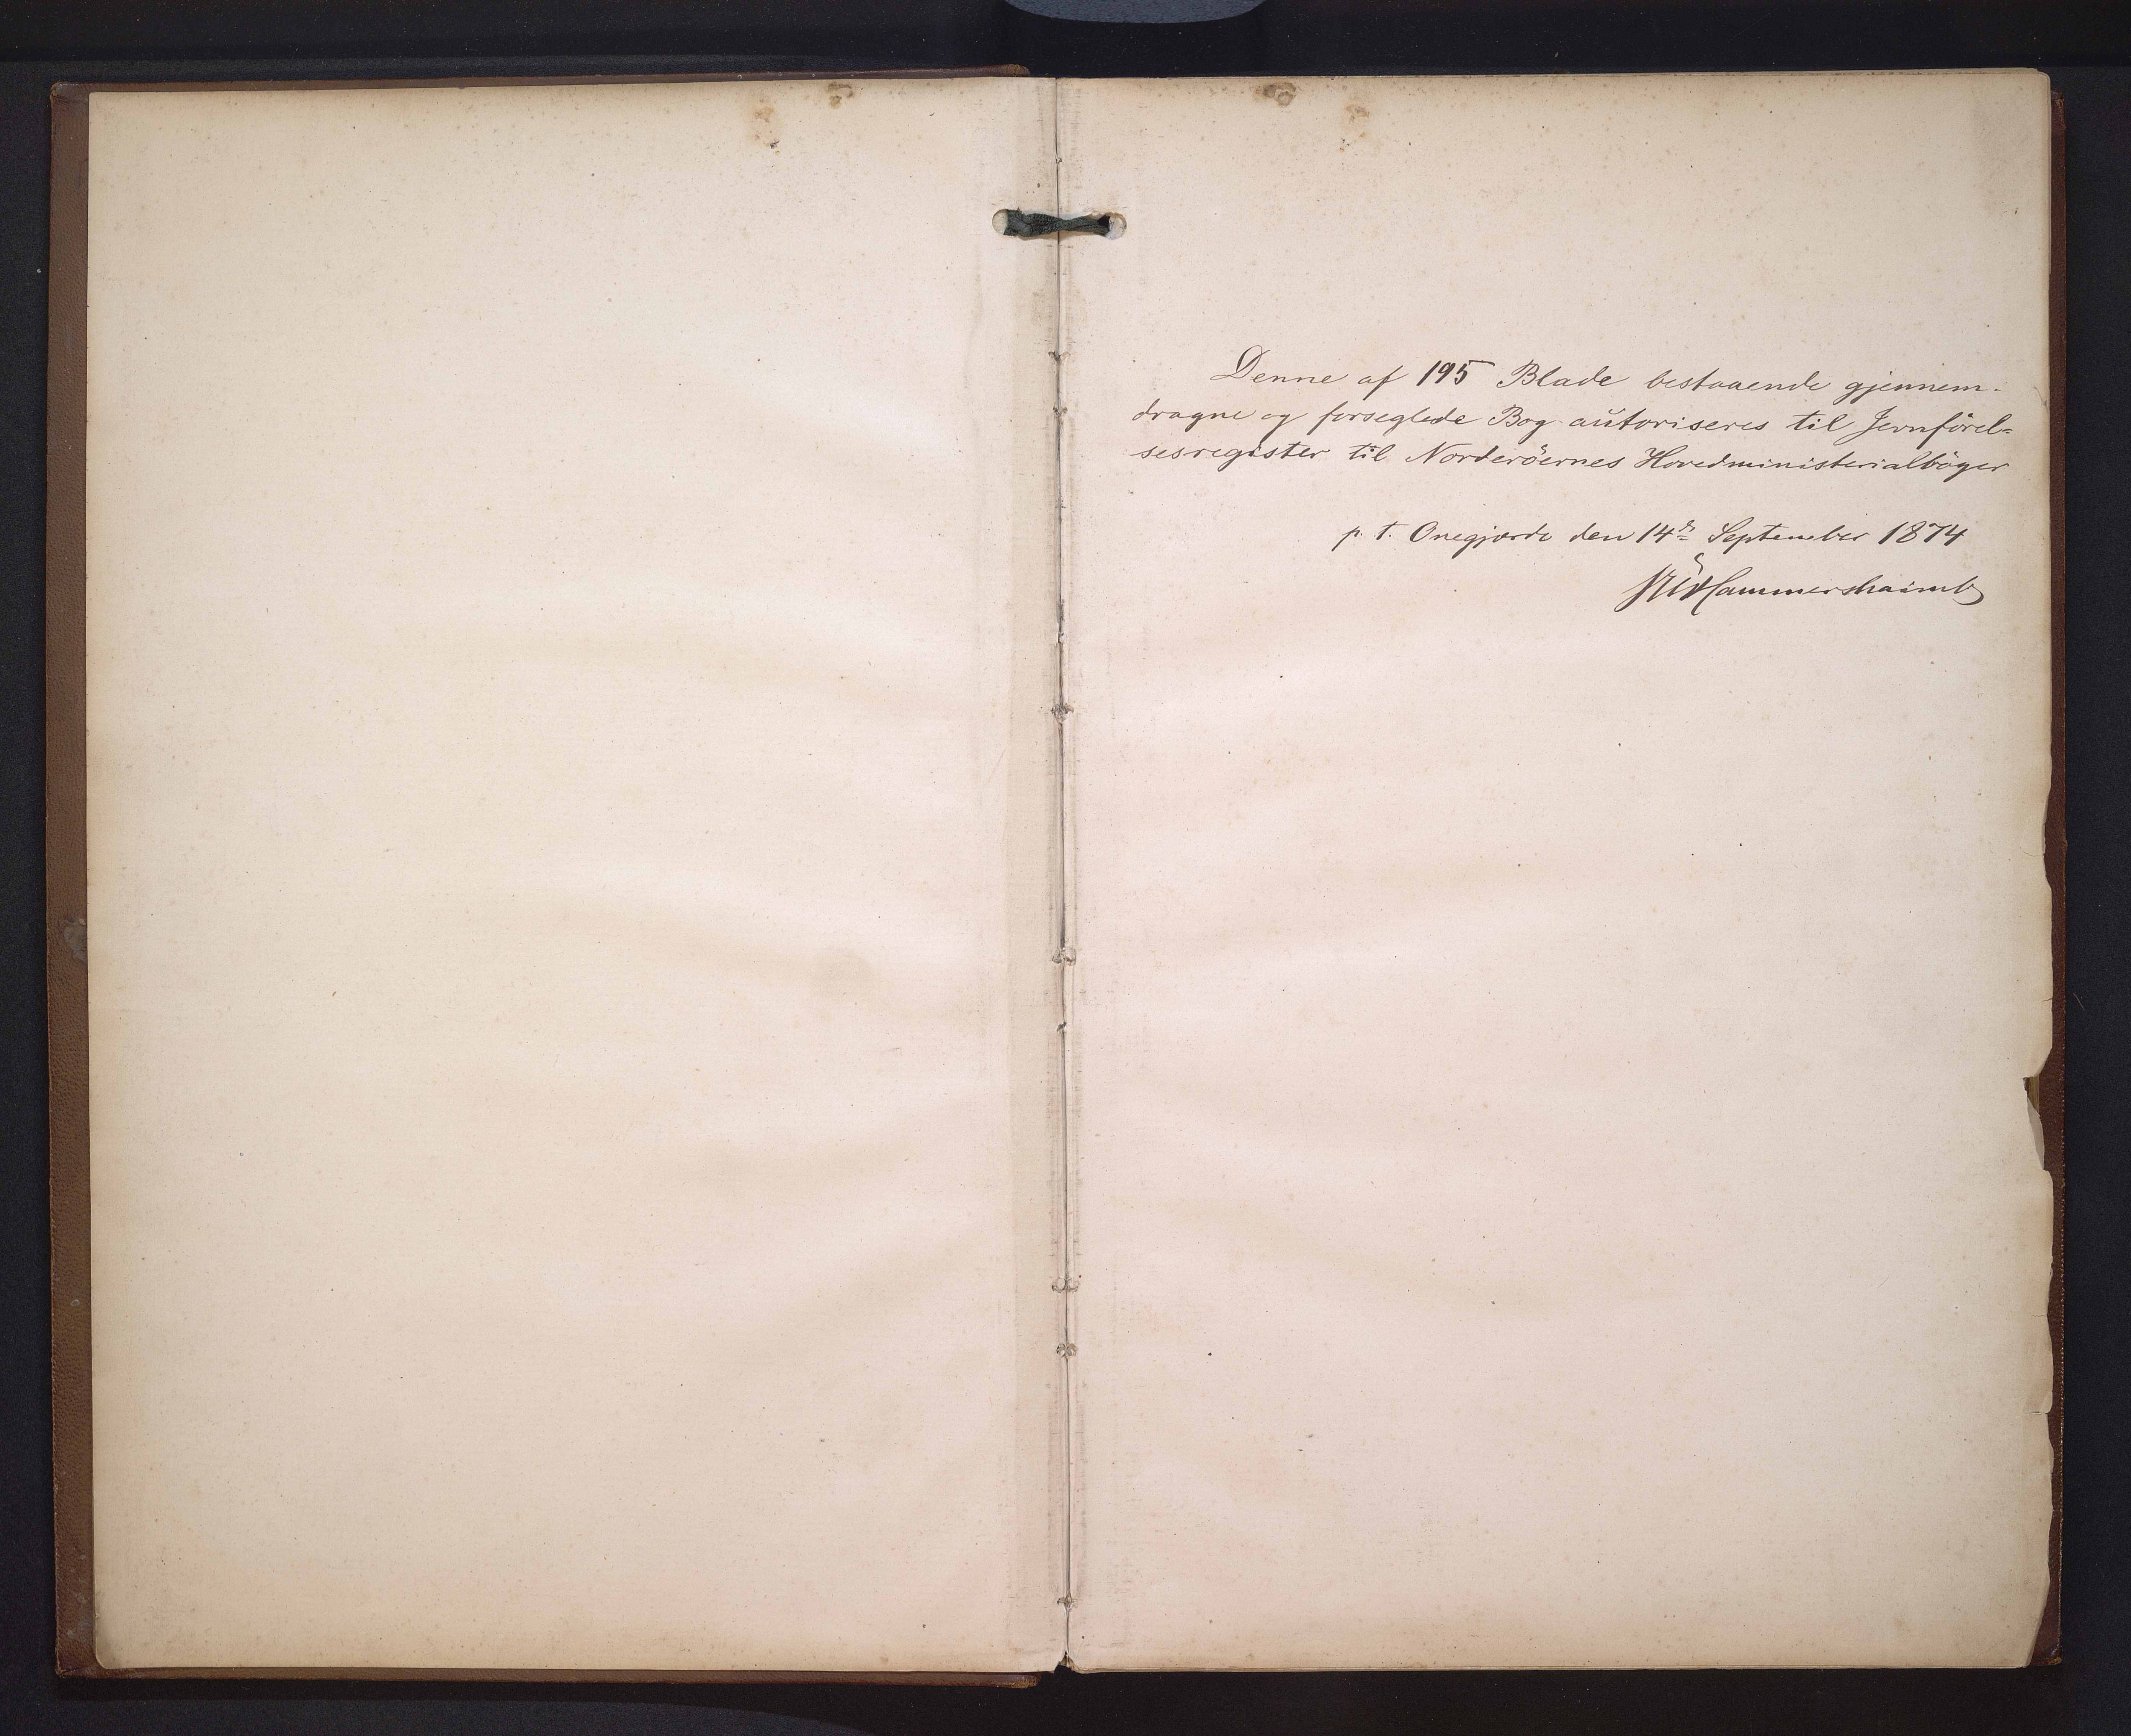 Denne af 195 Blade bestaaende gjennem-
dragne og forseglede Bog autoriseres til Jevnförel-
sesregister til Norderöernes Hovedministerialböger
p. t. Onegjærde den 14de September 1874
VUHammershaimb